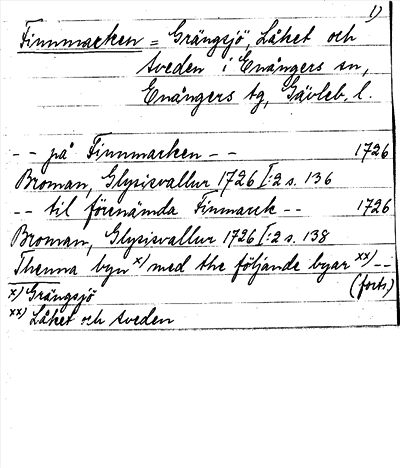 1)
Finnmarken = Grängsjö, Låket och
Sveden i Enångers sn,
Enångers tg, Gävleb. l.
-- på Finnmarken -- 1726
Broman, Glysisvallur 1726 I:2 s. 136
-- til förenämda Finmark -- 1726
Broman, Glysisvallur 1726 I:2 s. 138
Thenna byn x) med the följande byar xx) --
(forts)
x) Grängsjö
xx) Låket och Sveden